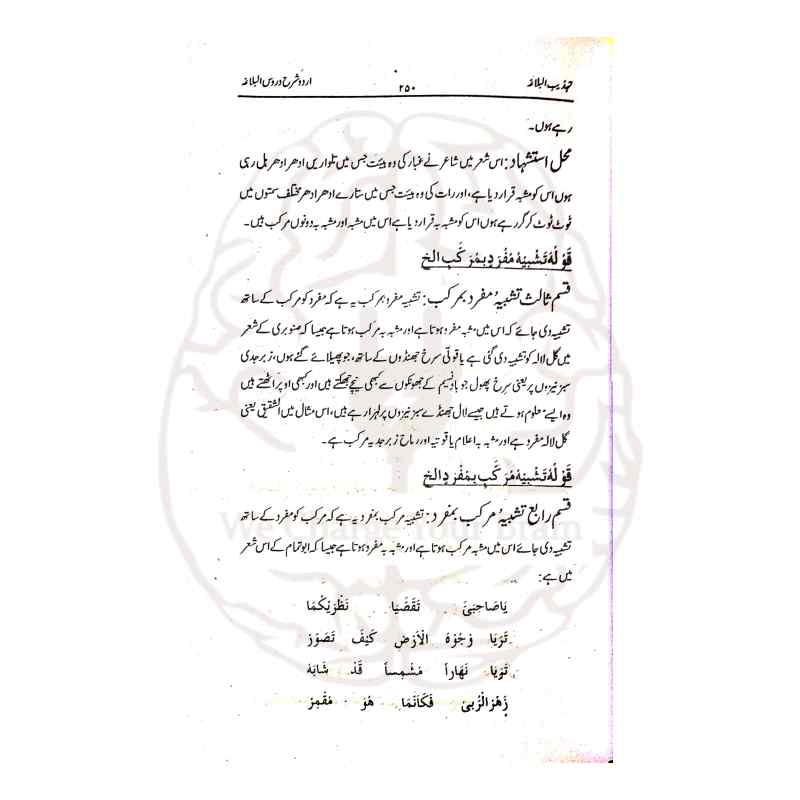 تہذیب البلاغہ ۲۵۰ اردو شرح دروس البلاغہ
رہے ہوں۔
محل استشہاد: اس شعر میں شاعر نے غبار کی وہ ہیئت جس میں تلواریں ادھر ادھر ہل رہی
ہوں اس کو مشبہ قرار دیا ہے، اور رات کی وہ ہیئت جس میں ستارے ادھر ادھر مختلف سمتوں میں
ٹوٹ ٹوٹ کر گر رہے ہوں اس کو مشبہ بہ قرار دیا ہے اس میں مشبہ اور مشبہ بہ دونوں مرکب ہیں۔
قَوْلُهُ تَشْبِيْهُ مُفْرَدٍ بِمُرَكَّبٍ الخ
قسم ثالث تشبیہُ مفرد بمرکب: تشبیہ مفرد بمرکب یہ ہے کہ مفرد کو مرکب کے ساتھ
تشبیہ دی جائے کہ اس میں مشبہ مفرد ہوتا ہے اور مشبہ بہ مرکب ہوتا ہے جیسا کہ صنوبری کے شعر
میں گل لالہ کو تشبیہ دی گئی ہے یاقوتی سرخ جھنڈوں کے ساتھ، جو پھیلائے گئے ہوں، زبرجدی
سبز نیزوں پر یعنی سرخ پھول جو بادِ نسیم کے جھونکوں سے کبھی نیچے جھکتے ہیں اور کبھی اوپر اٹھتے ہیں
وہ ایسے معلوم ہوتے ہیں جیسے لال جھنڈے سبز نیزوں پر لہرا رہے ہیں، اس مثال میں الشقیق یعنی
گل لالہ مفرد ہے اور مشبہ بہ اعلام یاقوتیہ اور رماح زبرجدیہ مرکب ہے۔
قَوْلُهُ تَشْبِيْهُ مُرَكَّبٍ بِمُفْرَدٍ الخ
قسم رابع تشبیہُ مرکب بمفرد: تشبیہ مرکب بمفرد یہ ہے کہ مرکب کو مفرد کے ساتھ
تشبیہ دی جائے اس میں مشبہ مرکب ہوتا ہے اور مشبہ بہ مفرد ہوتا ہے جیسا کہ ابو تمام کے اس شعر
میں ہے:
يَا صَاحِبَيَّ تَقَصَّيَا نَظَرَيْكُمَا
تَرَيَا وُجُوْهَ الْاَرْضِ كَيْفَ تَصَوَّرُ
تَرَيَا نَهَاراً مُشْمِساً قَدْ شَابَهُ
زَهْرُ الرُّبىٰ فَكَأَنَّمَا هُوَ مُقْمِرُ